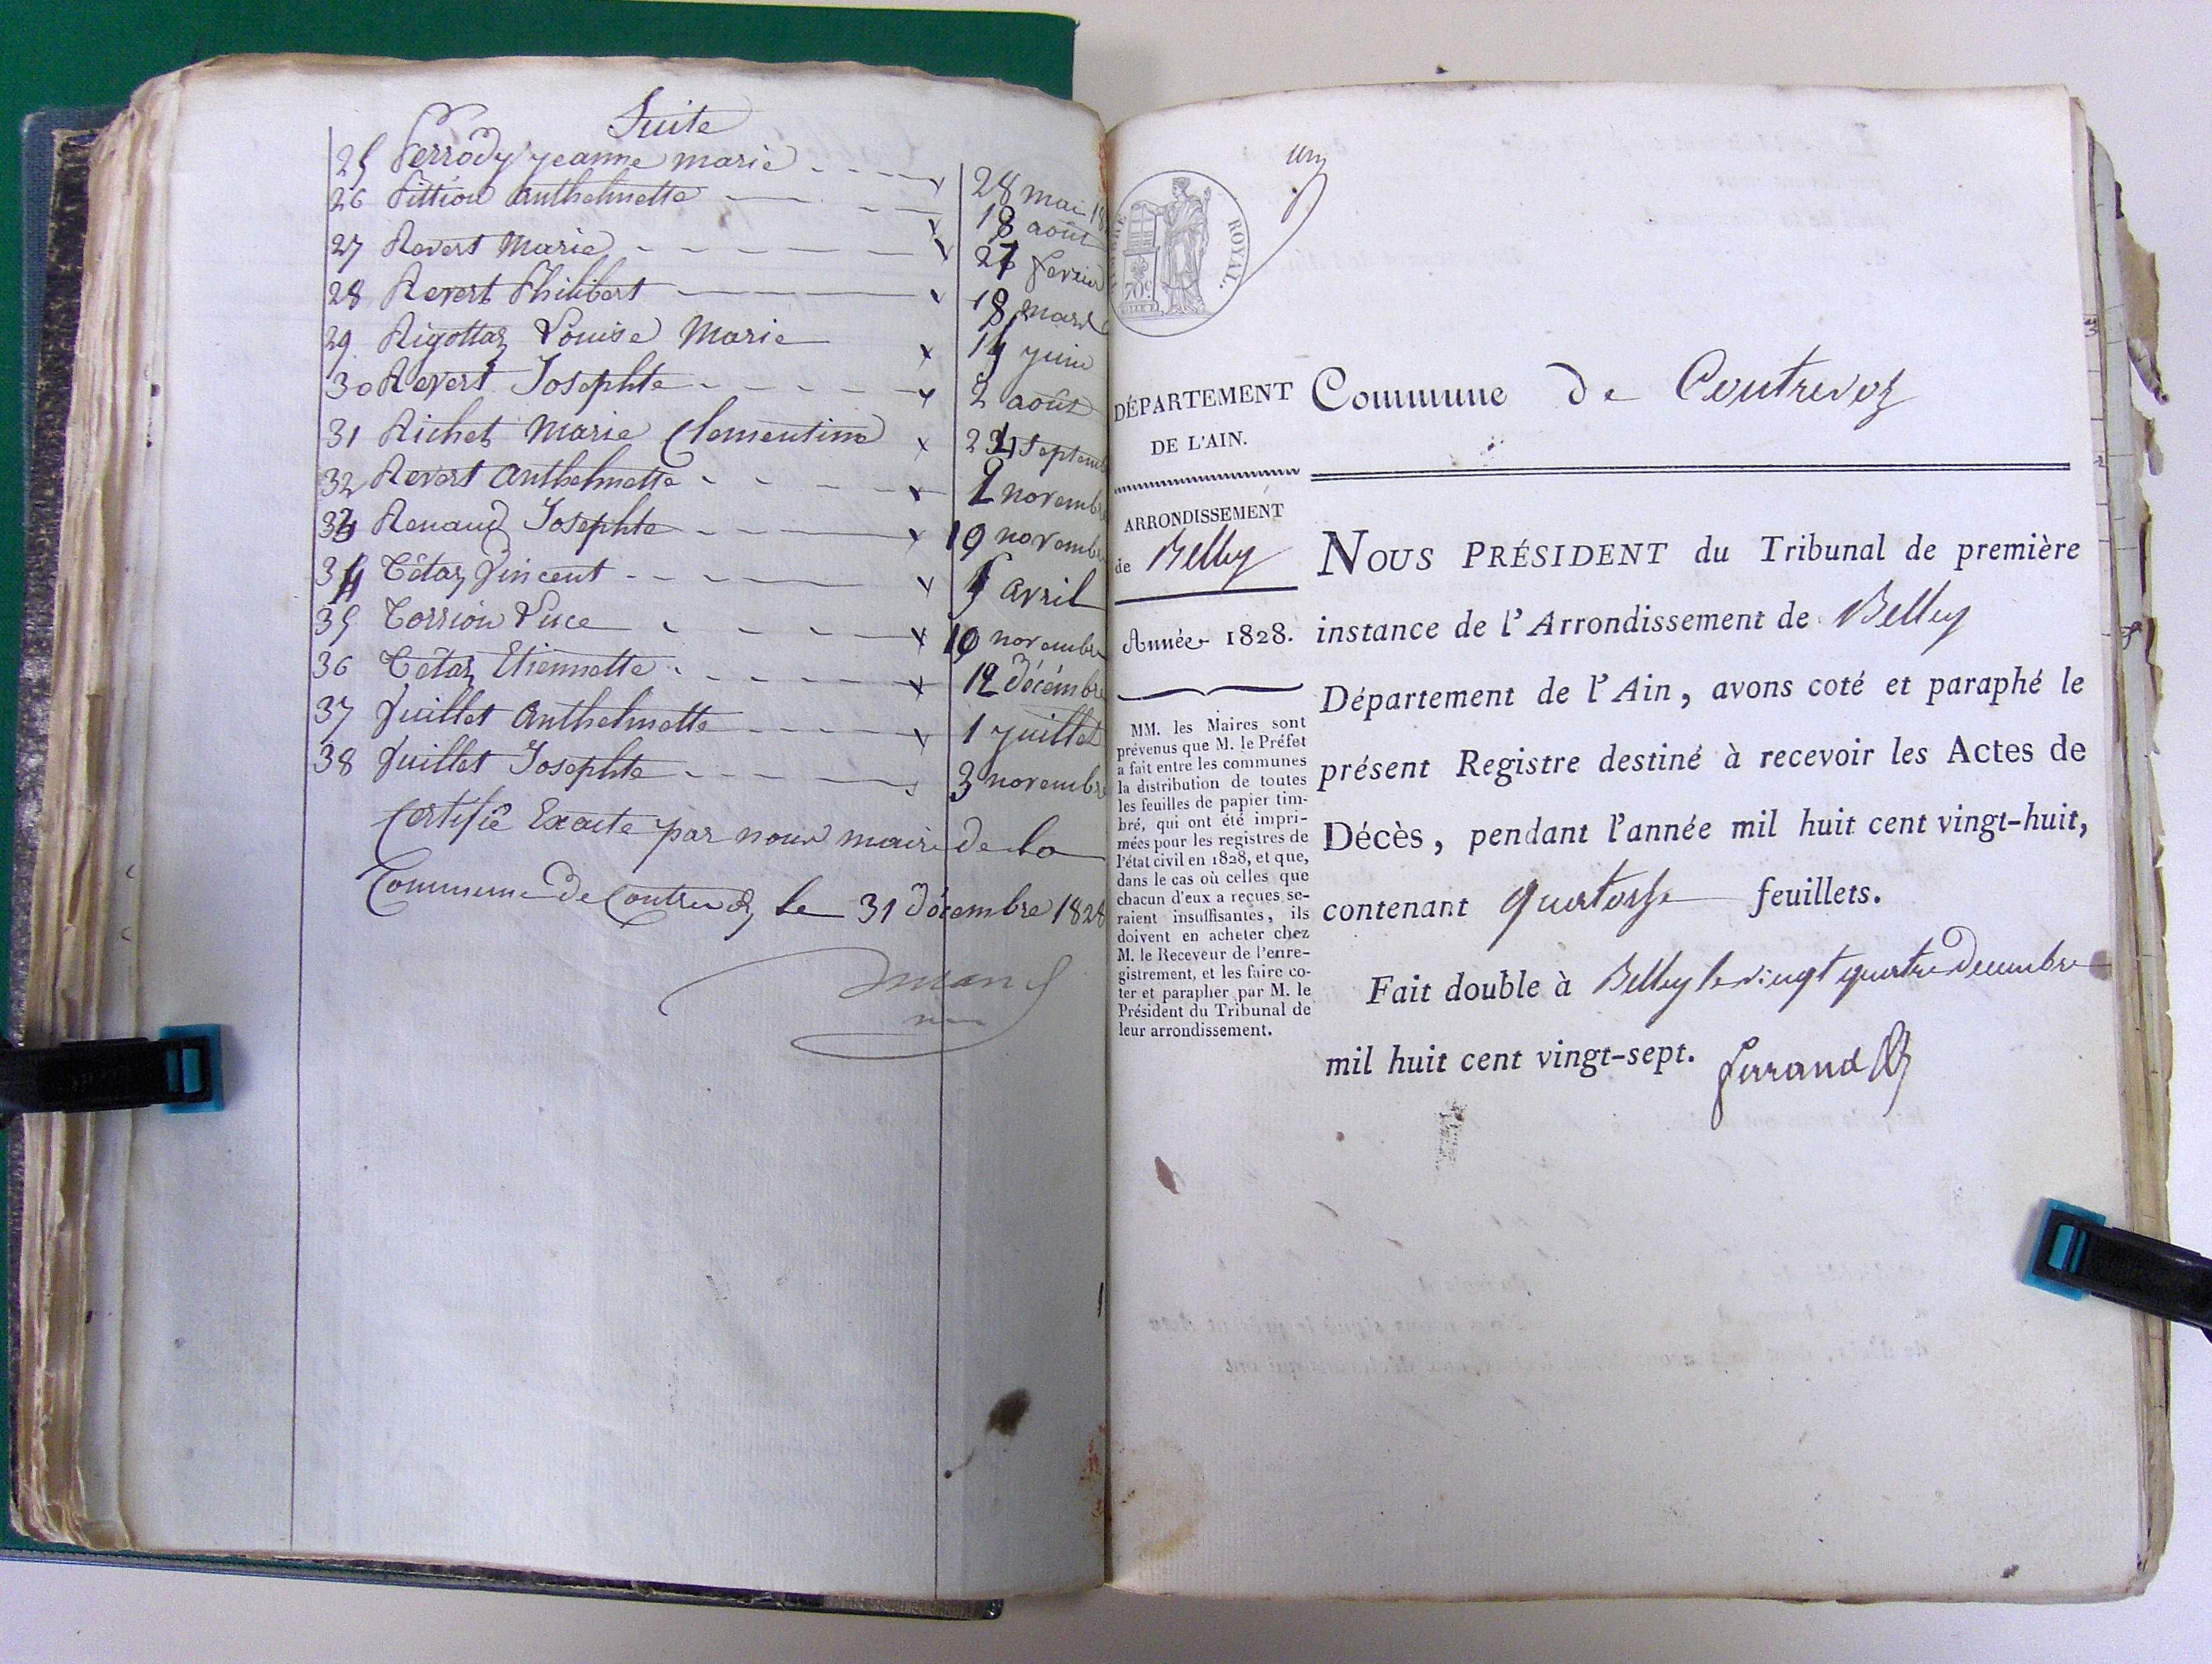 Suite
25 Perrody jeanne marie 28 mai 18
26 Pittion anthelmette 18 août
27 Revert Marie 27 fevrier
28 Revert Philibert 18 mars
29 Rigottaz Louise Marie 14 juin
30 Revert Josephte 2 août
31 Richet Marie Clementine 24 Septemb
32 Revert anthelmette 2 novembre
33 Renaud Josephte 19 novembre
34 Tétaz Vincent avril
35 Torrion Luce 10 novembre
36 Tétaz Etiennette 12 Décémbre
37 Juillet anthelmette 1 juillet
38 Juillet Josephte 3 novembre
Certifié Exacte par nous maire de la
Commune de Contrevoz le 31 Décembre 1828
ROYAL.
70c
DÉPARTEMENT
DE L'AIN.
ARRONDISSEMENT
de Belley
Année 1828.
MM. les Maires sont
prévenus que M. le Préfet
a fait entre les communes
la distribution de toutes
les feuilles de papier tim-
bré, qui ont été impri-
mées pour les registres de
l'état civil en 1828, et que,
dans le cas où celles que
chacun d'eux a reçues se-
raient insuffisantes, ils
doivent en acheter chez
M. le Receveur de l'enre-
gistrement, et les faire co-
ter et parapher par M. le
Président du Tribunal de
leur arrondissement.
Commune de Contrevoz
NOUS PRÉSIDENT du Tribunal de première
instance de l'Arrondissement de Belley
Département de l'Ain, avons coté et paraphé le
présent Registre destiné à recevoir les Actes de
Décès, pendant l'année mil huit cent vingt-huit,
contenant quatorze feuillets.
Fait double à Belley le vingt quatre decembre
mil huit cent vingt-sept.